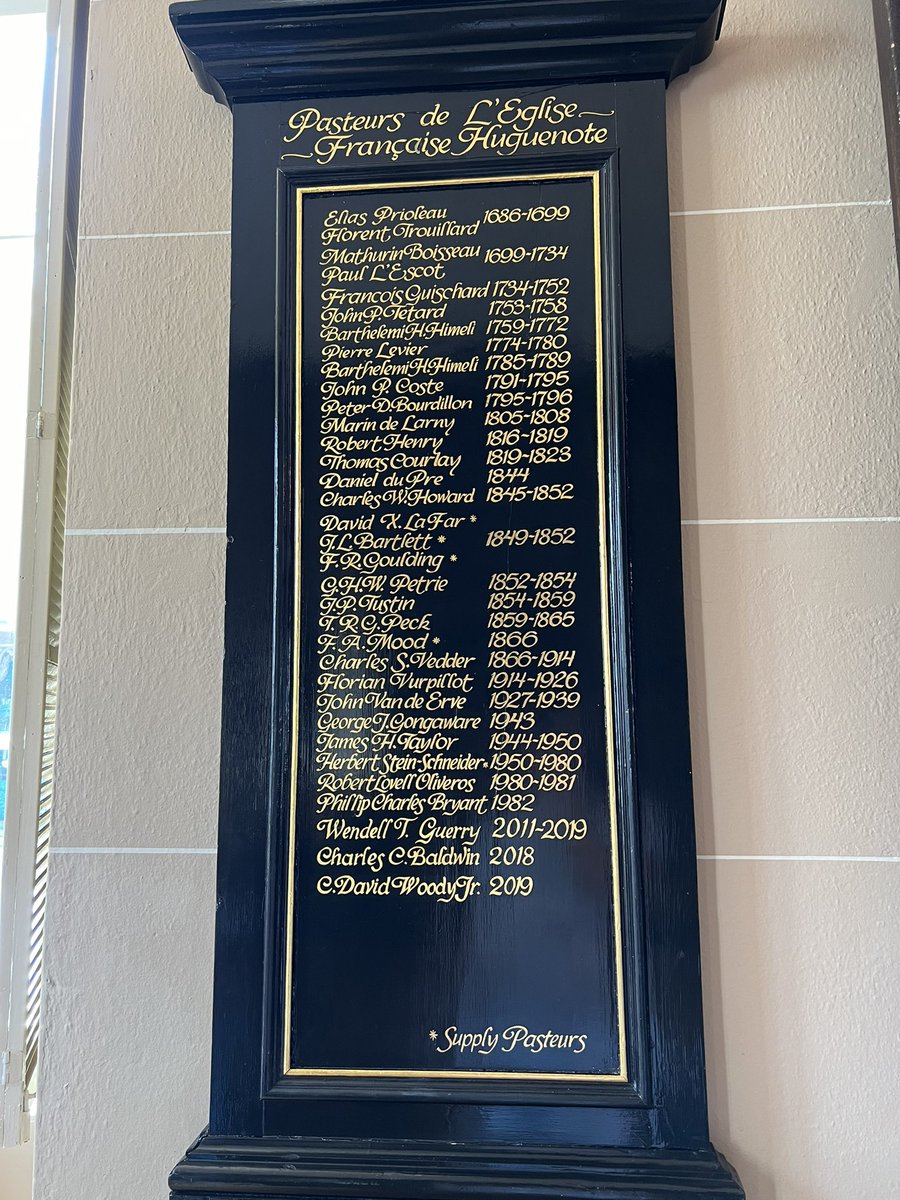 Pasteurs de L'Eglise
Française Huguenote
Elias Prioleau 1686-1699
Florent Trouillard
Mathurin Boisseau 1699-1734
Paul L'Escot
Francois Guischard 1734-1752
John P. Tetard 1753-1758
Barthelemi H. Himeli 1759-1772
Pierre Levier 1774-1780
Barthelemi H. Himeli 1785-1789
John P. Coste 1791-1795
Peter D. Bourdillon 1795-1796
Marin de Larny 1805-1808
Robert Henry 1816-1819
Thomas Courlay 1819-1823
Daniel du Pre 1844
Charles W. Howard 1845-1852
David X. LaFar *
J. L. Bartlett * 1849-1852
F. R. Goulding *
G. H. W. Petrie 1852-1854
J. P. Tustin 1854-1859
T. R. G. Peck 1859-1865
F. A. Mood * 1866
Charles S. Vedder 1866-1914
Florian Vurpillot 1914-1926
John Van de Erve 1927-1939
George J. Gongaware 1943
James H. Taylor 1944-1950
Herbert Stein-Schneider * 1950-1980
Robert Lovell Oliveros 1980-1981
Phillip Charles Bryant 1982
Wendell T. Guerry 2011-2019
Charles C. Baldwin 2018
C. David Woody Jr. 2019
* Supply Pasteurs